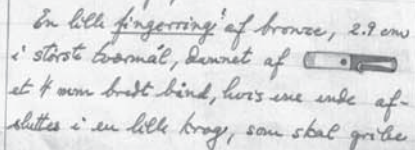 En lille fingerring! af bronze, 2.9 cm
i störst tværmål, dannet af
et 4 mm bredt bånd, hvis ene ende af-
sluttes i en lille krog, som skal gribe